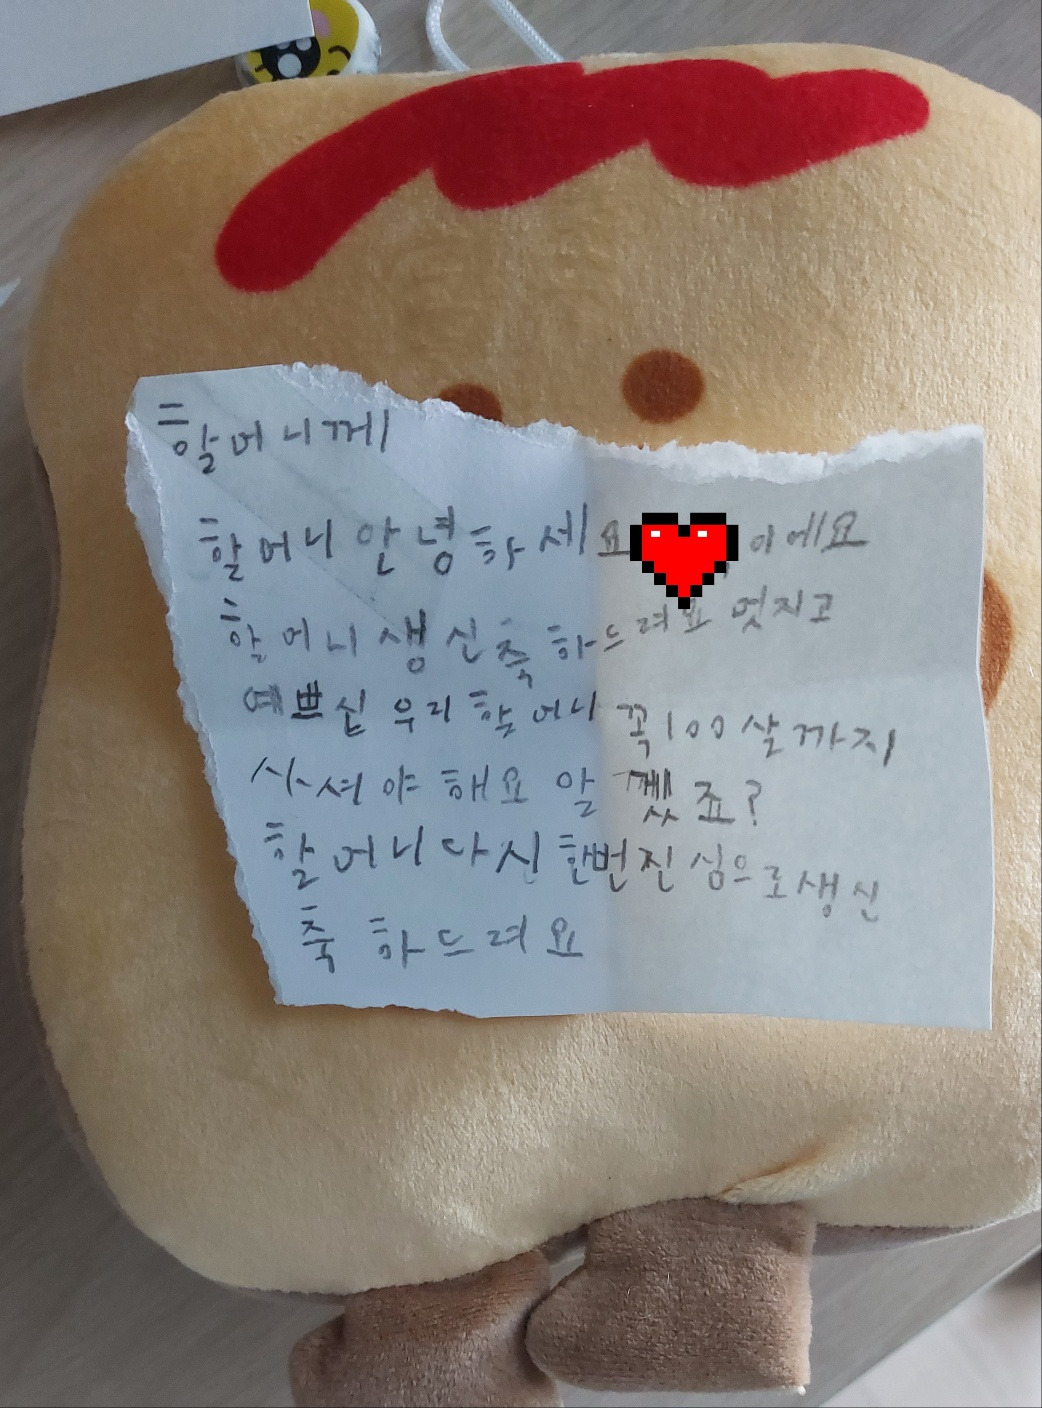 할머니께
할머니 안녕하세요 이에요
할머니 생신축하드려요 멋지고
예쁘신 우리 할머니 꼭 100살까지
사셔야 해요 알겠죠?
할머니 다신 한번 진심으로 생신
축하드려요